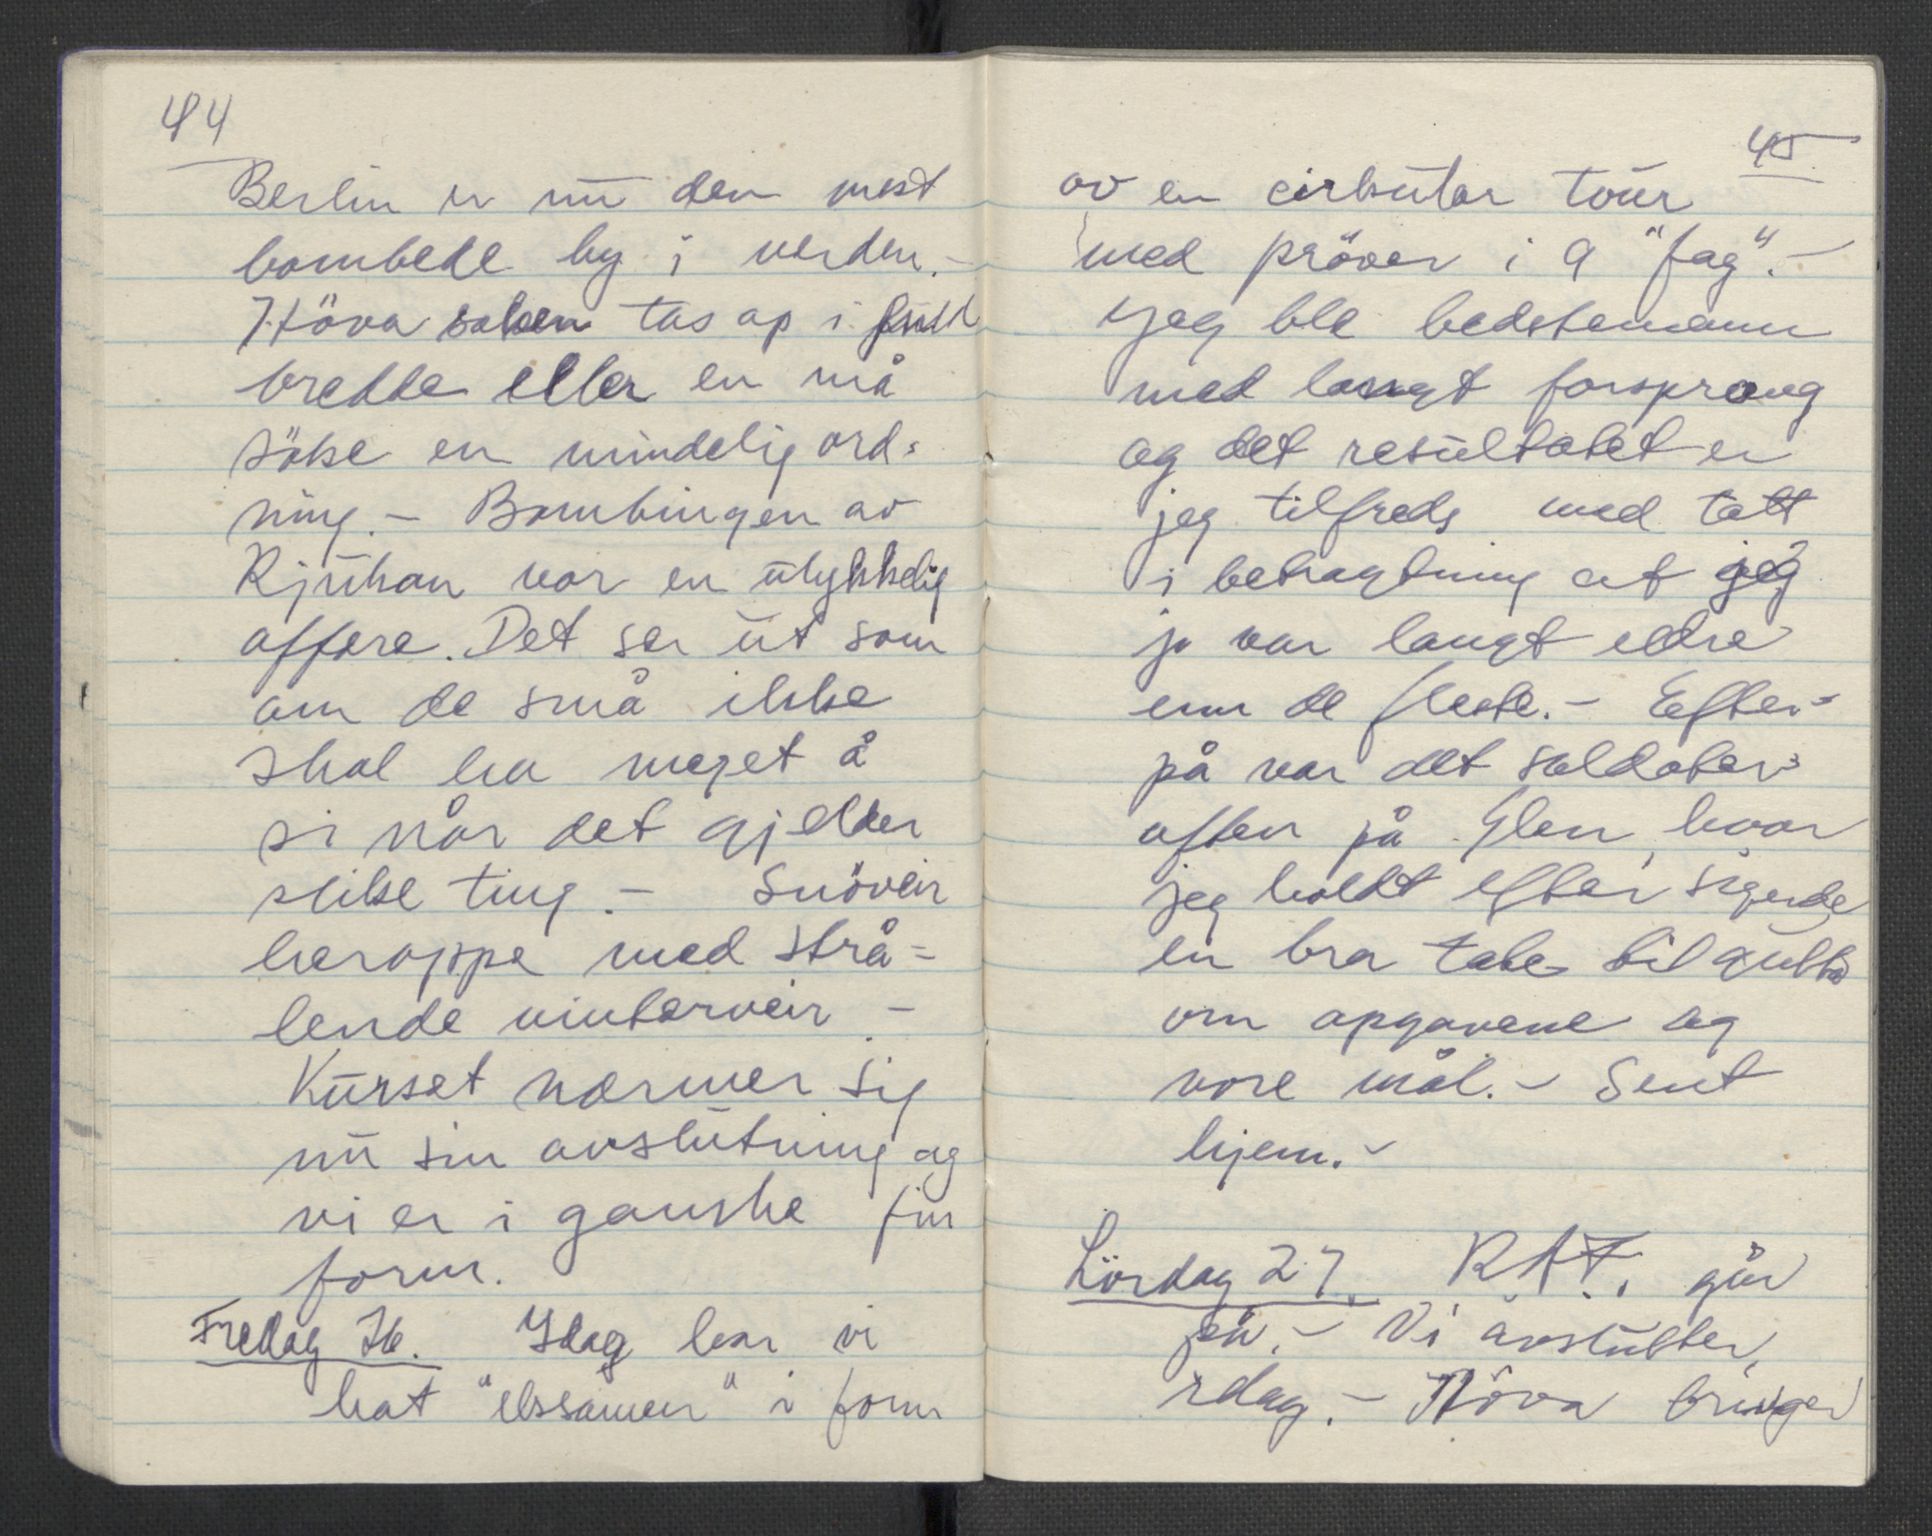 44
Berlin er nu den mest
bombede by i verden.-
Höva saken tas op i full
bredde eller en må
söke en mindelig ord-
ning. - Bombingen av
Rjukan var en ulykkelig
affære. Det ser ut som
om de små ikke
skal ha meget å
si når det gjelder
slike ting. - Snöveir
heroppe med strå-
lende vinterveir. -
Kurset nærmer sig
nu sin avslutning og
vi er i ganske fin
form.
Fredag 26. Idag har vi
hat "eksamen" i form
45
av en cirkulær tour
med pröver i 9 "fag". -
Jeg ble bedstemann
med langt forsprang
og det resultatet er
jeg tilfreds med tatt
i betragtning at jeg
jo var langt eldre
enn de fleste. - Efter-
på var det soldater-
aften på Glen, hvor
jeg holdt efter sigende
en bra tale til gutta
om opgavene og
vore mål. - Sent
hjem. -
Lördag 27. RAF. går
på. - Vi avslutter
idag. - Höva bringer